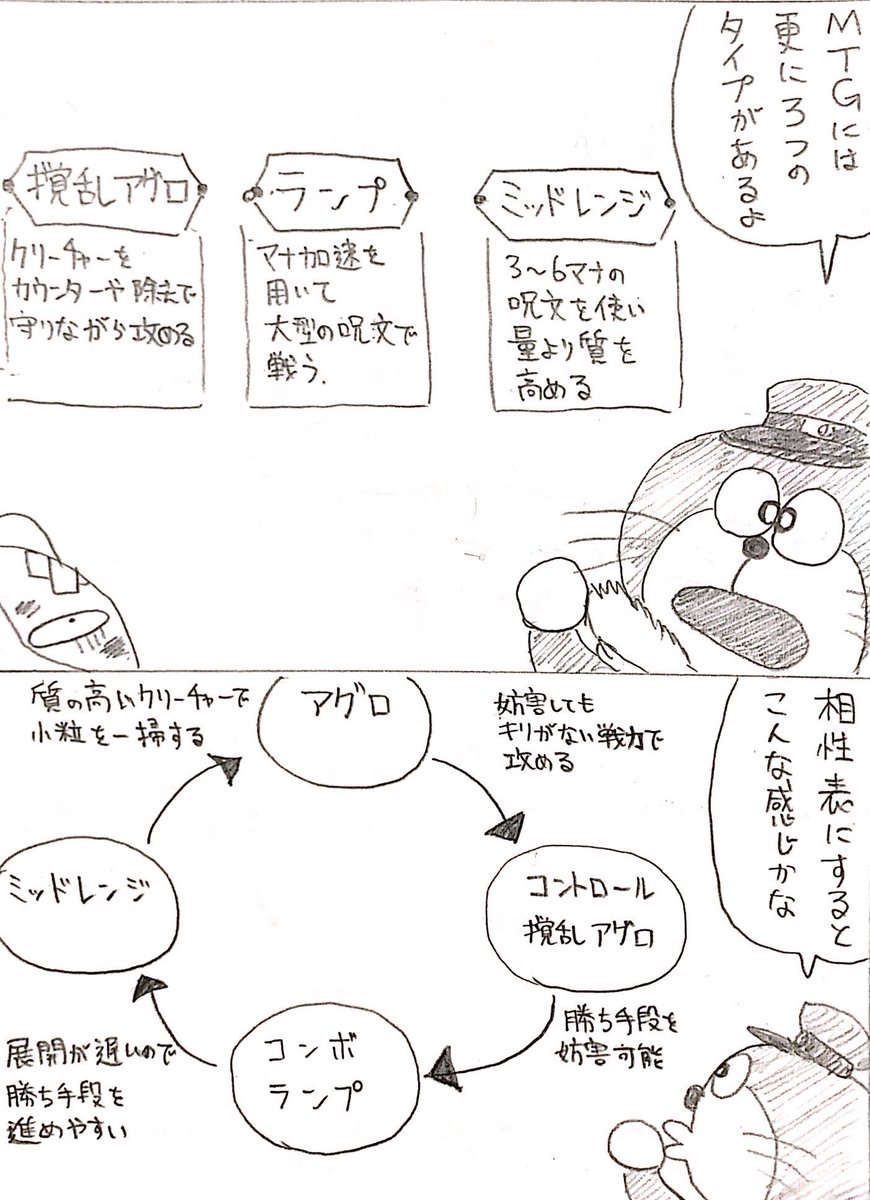 MTGには
更に3つの
タイプがあるよ
ミッドレンジ
3〜6マナの
呪文を使い
量より質を
高める
ランプ
マナ加速を
用いて
大型の呪文で
戦う.
撹乱アグロ
クリーチャーを
カウンターや除去で
守りながら攻める
相性表にすると
こんな感じかな
アグロ
妨害しても
キリがない戦力で
攻める
コントロール
撹乱アグロ
勝ち手段を
妨害可能
コンボ
ランプ
展開が遅いので
勝ち手段を
進めやすい
ミッドレンジ
質の高いクリーチャーで
小粒を一掃する